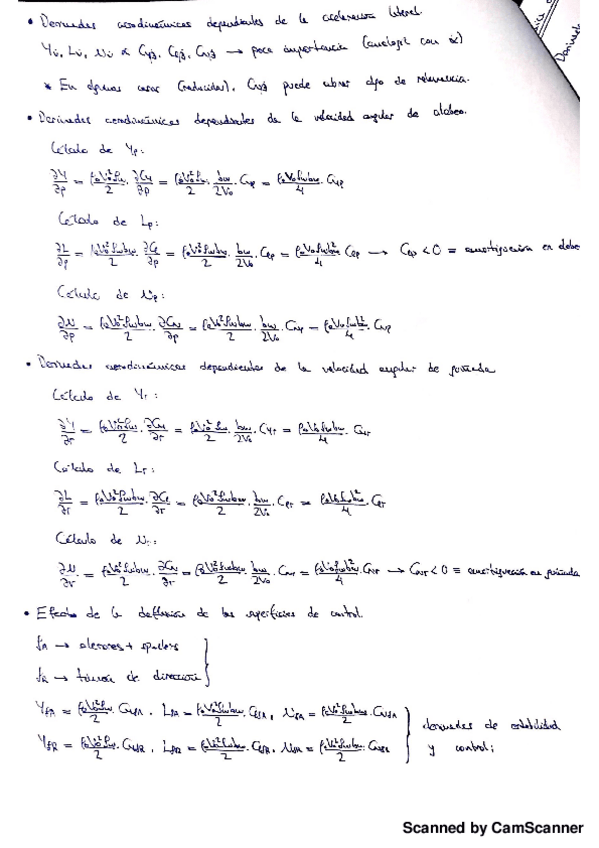 • Derivadas aerodinámicas dependientes de la aceleración lateral.
Yv̇, Lv̇, Nv̇ ∝ Cyβ̇, Clβ̇, Cnβ̇ → poca importancia (analogía con α̇)
* En algunos casos (reducidos), Cnβ̇ puede cobrar algo de relevancia.
• Derivadas aerodinámicas dependientes de la velocidad angular de alabeo.
Cálculo de Yp:
∂Y/∂p = ρ₀V₀²Sw/2 · ∂Cy/∂p = ρ₀V₀²Sw/2 · bw/2V₀ · Cyp = ρ₀V₀Swbw/4 · Cyp
Cálculo de Lp:
∂L/∂p = ρ₀V₀²Swbw/2 · ∂Cl/∂p = ρ₀V₀²Swbw/2 · bw/2V₀ · Clp = ρ₀V₀Swbw²/4 Clp → Clp < 0 ≡ amortiguación en alabe
Cálculo de Np:
∂N/∂p = ρ₀V₀²Swbw/2 · ∂Cn/∂p = ρ₀V₀²Swbw/2 · bw/2V₀ · Cnp = ρ₀V₀Swbw²/4 · Cnp
• Derivadas aerodinámicas dependientes de la velocidad angular de guiñada
Cálculo de Yr:
∂Y/∂r = ρ₀V₀²Sw/2 · ∂Cy/∂r = ρ₀V₀²Sw/2 · bw/2V₀ · Cyr = ρ₀V₀Swbw/4 · Cyr
Cálculo de Lr:
∂L/∂r = ρ₀V₀²Swbw/2 · ∂Cl/∂r = ρ₀V₀²Swbw/2 · bw/2V₀ · Clr = ρ₀V₀Swbw²/4 · Clr
Cálculo de Nr:
∂N/∂r = ρ₀V₀²Swbw/2 · ∂Cn/∂r = ρ₀V₀²Swbw/2 · bw/2V₀ · Cnr = ρ₀V₀Swbw²/4 Cnr → Cnr < 0 ≡ amortiguación en guiñada
• Efecto de la deflexión de las superficies de control.
δA → alerones + spoilers
δR → timón de dirección
YδA = ρ₀V₀²Sw/2 · CyδA, LδA = ρ₀V₀²Swbw/2 · ClδA, NδA = ρ₀V₀²Swbw/2 · CnδA
YδR = ρ₀V₀²Sw/2 · CyδR, LδR = ρ₀V₀²Swbw/2 · ClδR, NδR = ρ₀V₀²Swbw/2 · CnδR
derivadas de estabilidad
y control;
Scanned by CamScanner